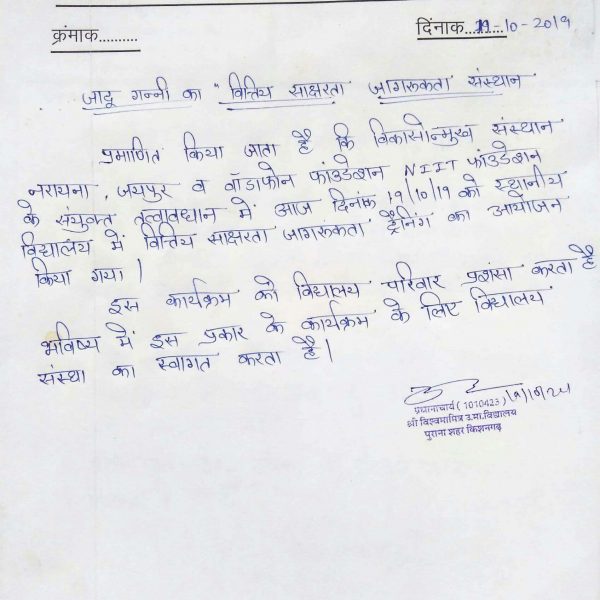 क्रंमाक..........
दिंनाक...19-10-2019
जादू गन्नी का "वित्तिय साक्षरता जागरूकता संस्थान
प्रमाणित किया जाता है कि विकासोन्मुख संस्थान
नरायना, जयपुर व वॉडाफोन फांउडेशन NIIT फांउडेशन
के संयुक्त तत्वावधान में आज दिनांक 19/10/19 को स्थानीय
विद्यालय में वित्तिय साक्षरता जागरूकता ट्रैनिंग का आयोजन
किया गया।
इस कार्यक्रम की विद्यालय परिवार प्रशंसा करता है
भविष्य में इस प्रकार के कार्यक्रम के लिए विद्यालय
संस्था का स्वागत करता है।
प्रधानाचार्य (1010423)
श्री विश्वमामित्र उ.मा.विद्यालय
पुराना शहर किशनगढ़